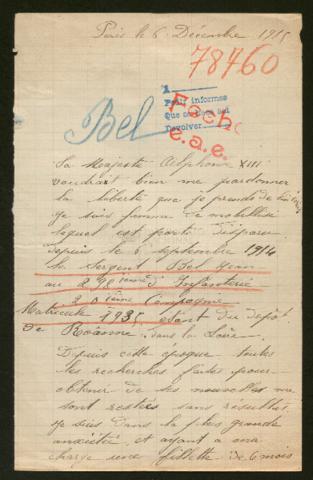 Paris le 6 Décembre 1915
78460
1
Para informes
Que se
Devolver
Bel
Ficha
e.a.e.
Sa Majesté Alphonse XIII
voudrait bien me pardonner
la liberté que je prends de
je suis femme de mobilisé
lequel est porté disparu
depuis le 6 septembre 1914
le sergent Bel Jean
au 298 ième d'Infanterie
20 ième Compagnie
Matricule 1935 étant du dépôt
de Roanne, dans la Loire.
Depuis cette époque toutes
les recherches faites pour
obtenir de ses nouvelles me
sont restées sans résultat
je suis dans la plus grande
anxiété, et ayant a ma
charge une fillette de 6 mois